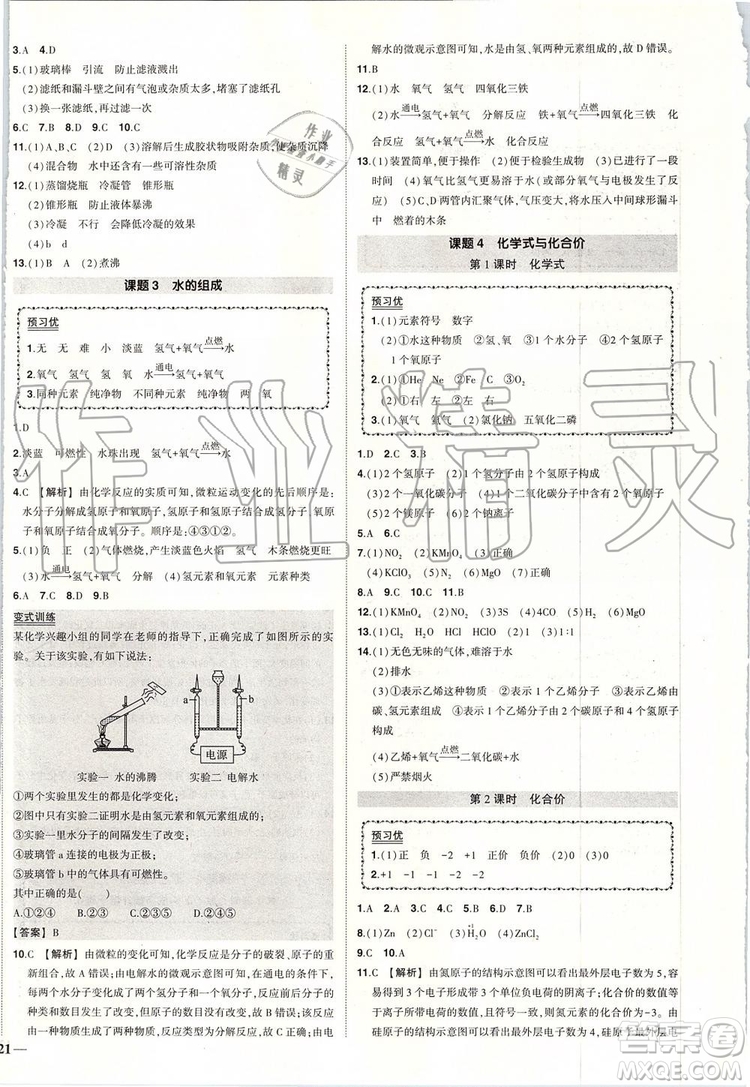 3.A 4.D
5.(1)玻璃棒 引流 防止滤液溅出
(2)滤纸和漏斗壁之间有气泡或杂质太多,堵塞了滤纸孔
(3)换一张滤纸,再过滤一次
6.C 7.B 8.D 9.C 10.C
11.(1)A、B、C (2)B、C (3)溶解后生成胶状物质吸附杂质,使杂质沉降
(4)混合物 水中还含有可溶性杂质
12.(1)蒸馏烧瓶 冷凝管 锥形瓶
(2)锥形瓶 防止液体暴沸
(3)冷凝 不行 会降低冷凝的效果
(4)b b
13.(1)B D A (2)煮沸
课题3 水的组成
预习优
1.无 无 难 小 淡蓝 氢气+氧气—点燃→水
2.氧气 氢气 氢 氧 水—通电→氢气+氧气
3.同种元素 纯净物 不同种元素 纯净物 两 氧
1.D
2.淡蓝 可燃性 水珠出现 氢气+氧气—点燃→水
3.A
4.C 【解析】由化学反应的实质可知,微粒运动变化的先后顺序是:
水分子分解成氢原子和氧原子,氢原子和氢原子结合成氢分子,氧原
子和氧原子结合成氧分子。顺序是:④③①②。
5.(1)负 正 (2)气体燃烧,产生淡蓝色火焰 氢气 木条燃烧更旺
(3)水—通电→氢气+氧气 分解 (4)氢元素和氧元素 元素种类
6.C 7.D 8.C 9.B
变式训练
某化学兴趣小组的同学在老师的指导下,完成了如图所示的实
验。关于该实验,有以下一些说法:
a b
电源
实验一 水的沸腾 实验二 电解水
①两个实验里发生的都是化学变化;
②图中只有实验二证明水是由氢元素和氧元素组成的;
③实验一里水分子的间隔发生了改变;
④玻璃管 a 上连接的电极为正极;
⑤玻璃管 b 中的气体具有可燃性。
其中正确的是( )
A.①②④ B.②③④ C.②③⑤ D.①④⑤
【答案】B
10.C 【解析】由微粒的变化可知,化学反应是分子的破裂、原子的重
新组合,故 A 错误;由电解水的微观示意图可知,在通电的条件下,
1 个水分子分解产生 2 个氢原子和 1 个氧原子,故 B 错误;由于反
应前后分子和原子的数目发生改变,反应类型为分解反应,由电
21
解水的微观示意图可知,水是由氢、氧两种元素组成的,故 D 错误。
11.B
12.(1)水 氧气 氢气 氧气 四氧化三铁
(2)水—通电→氢气+氧气 分解反应 铁+氧气—点燃→四氧化三铁 化
合反应 氢气+氧气—点燃→水 化合反应
13.(1)装置简单,便于操作 (2)便于检验生成物 (3)反应已进行了一段
时间 (4)氧气比氢气更易溶于水(或部分氧气与电极发生了
反应) (5)C、D 两管内汇聚气体,气压变大,将水压入中间球形漏斗
中 燃着的木条
课题4 化学式与化合价
第1课时 化学式
预习优
1.(1)元素符号 数字
(2)①水这种物质 ②氢、氧 ③1 个水分子 ④2 个氢原子
1 个氧原子
2.(1)①He Ne ②Fe C ③H₂ O₂
(2)①右 左 ②左 右
3.(1)氧气 氮气 (2)氯化钠 五氧化二磷
1.D 2.C 3.C
4.(1)2 个氢原子 (2)2 个氢分子 (4)1 个氢分子由 2 个氢原子构成
(3)2 个一氧化碳分子 (4)1 个二氧化碳分子
(5)2 个镁原子 (6)2 个钠离子
5.A 6.C
7.(1)NO₂ (2)MnO₂ (3)正确
(4)KClO₃ (5)N₂ (6)MgO (7)正确
8.A 9.C 10.C 11.B
12.(1)KMnO₄ (2)H₂ (3)MgO (4)CO₂
13.(1)Cl₂ H₂O O₂ (2)3 (3)1∶1
14.(1)无色无味的气体,难溶于水
(2)排水
(3)①表示乙烯这种物质 ②表示 1 个乙烯分子 ③表示乙烯由
碳、氢元素组成 ④表示 1 个乙烯分子由 2 个碳原子和 4 个氢原子
构成
(4)乙烯+氧气—点燃→二氧化碳+水
(5)严禁烟火
第2课时 化合价
预习优
1.(1)正 负 -2 +1 (2)正 负 (3)0 (4)0
2.+1 -1 -2 -1 -1 -2 -2
1.A 2.A 3.D 4.C 5.D 6.D 7.C
8.(1)Zn (2)Cl⁻ (3)H₂O
9.C 10.A
11.C 【解析】由氮原子的结构示意图可看出最外层电子数为 5,易得
到 3 个电子形成带 3 个单位负电荷的阴离子;化合价的数值等于
离子的电荷数值,且符号一致,则氮元素的化合价为-3 价。由
硅原子的结构示意图可以看出最外层电
作业精灵
答案圈
MXQE.COM